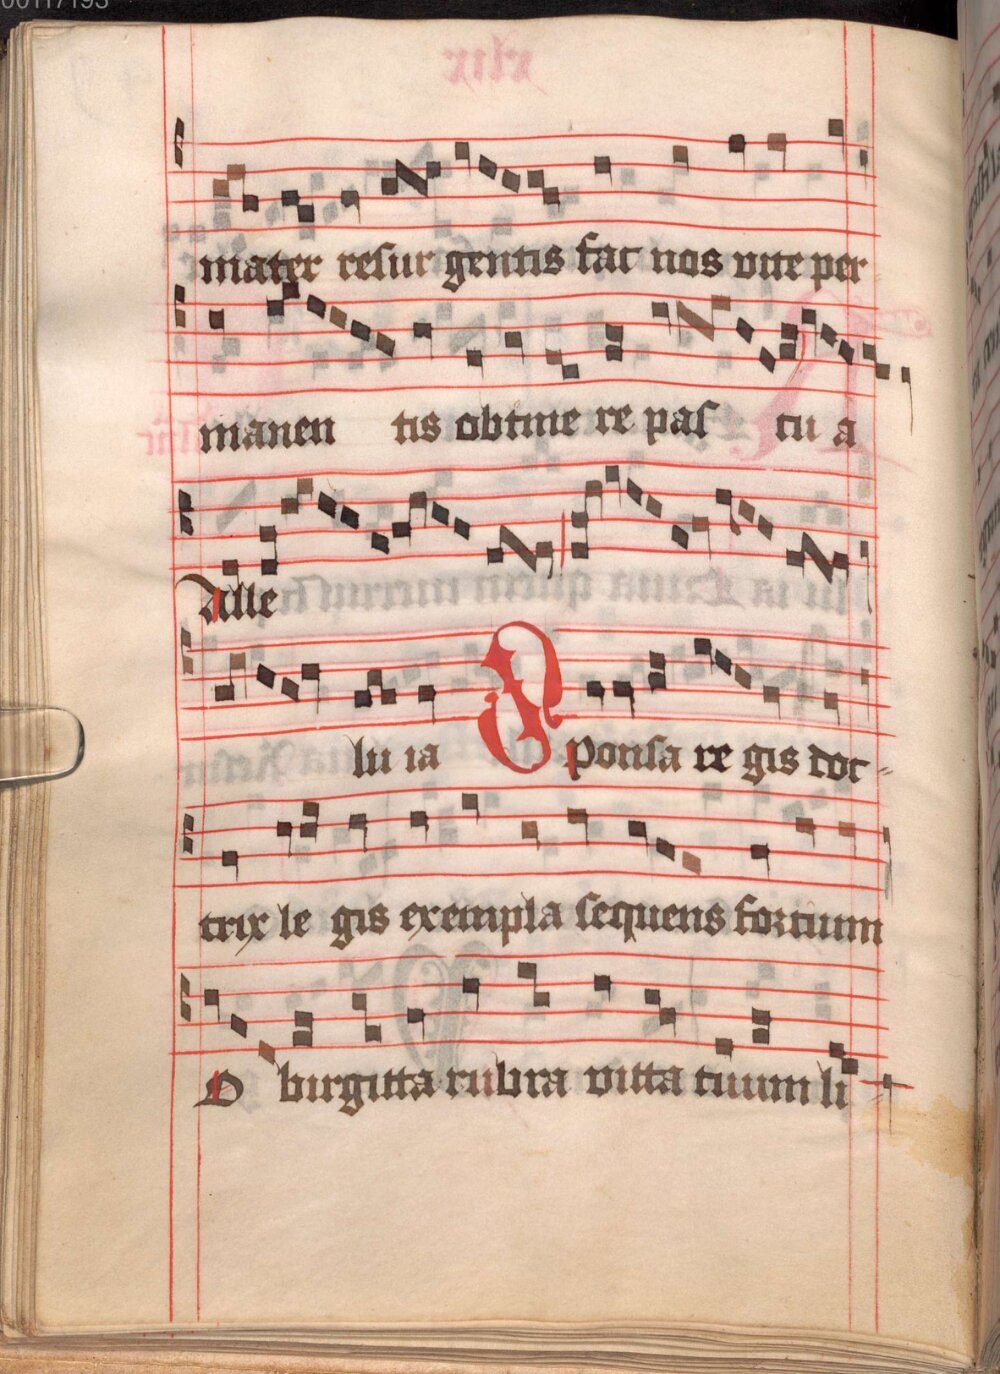 00117193
mater resur gentis fac nos vite per
manen tis obtine re pas cu a
Alle
lu ia Sponsa re gis doc
trix le gis exempla sequens fortium
O birgitta rubra vitta tuum li